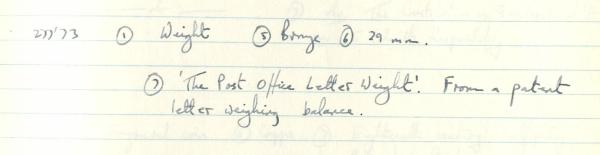 277'73 ① Weight ⑤ Bronze ⑥ 29 mm.
⑦ 'The Post Office Letter Weight'. From a patent
letter weighing balance.